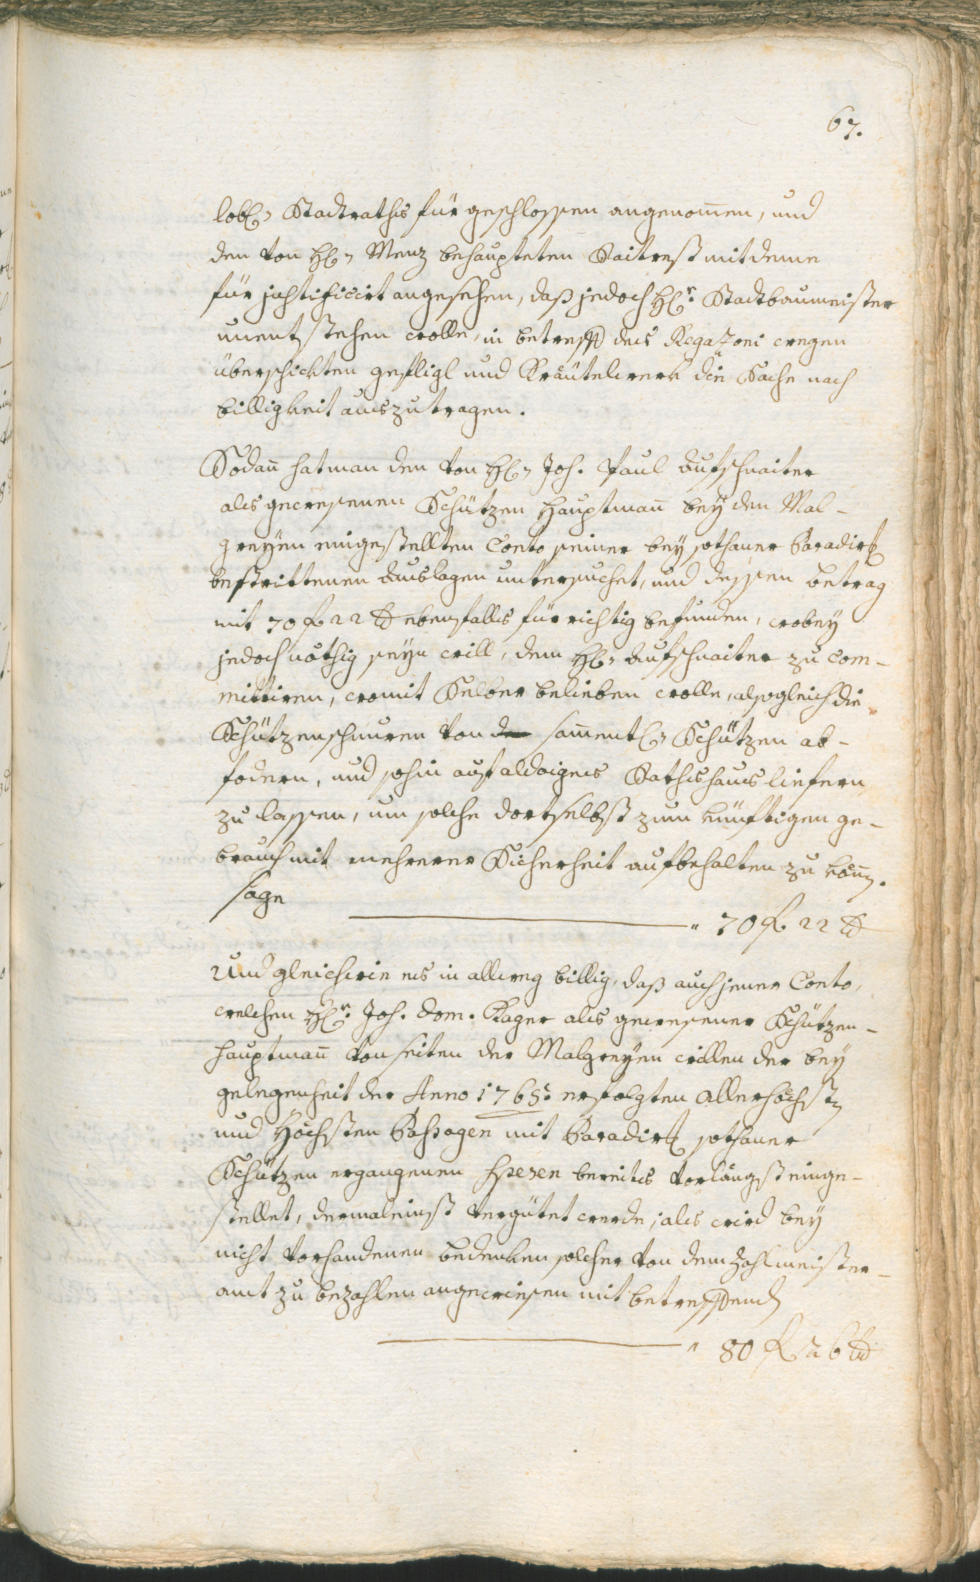 67.
lobl. Stadtraths für geschlossen angenom̄en, und
den von H. Menz behaupteten Raitrest mit deme
für justificirt angesehen, daß jedoch Hr. Stadtbaumeister
unentstehen wolle, in betreff des Regazoni wegen
überschickten gefligl und Kräutelwerk die Sache nach
billigkeit auszutragen.
Sodan̄ hat man den von H. Joh. Paul Aufschnaiter
als gewesenen Schützen Hauptman̄ bey den Mal-
greyen eingestellten Conto seiner bey sothaner Paradirg
bestrittenen Auslagen untersuchet, und dessen betrag
mit 70 f. 22 xr ebenfalls für richtig befunden, wobey
jedoch nöthig seyn will, dem H. Aufschnaiter zu com-
mittiren, womit Selber belieben wolle, alsogleich die
Schützenschnuren von sam̄entl. Schützen ab-
fodern, und sohin auf aldoiges Rathshaus liefern
zu lassen, um solche dortselbst zum künftigen ge-
brauch mit mehrerer Sicherheit aufbehalten zu könn.
sage
" 70 f. 22 xr
Und gleichwie es in allweg billig, daß auch jener Conto,
welchen Hr. Joh. Dom. Kager als gewesener Schützen-
hauptman̄ von seiten der Malgreyen willen der bey
gelegenheit der Anno 1765: erfolgten Allerhöchstn
und Höchsten Passagen mit Paradirg sothaner
Schützen ergangenen Spesen bereits vorlängst einge-
stellet, dermaleinst vergütet werde; als wird bey
nicht vorhandenen bedenken solcher von dem Zahlmeister-
amt zu bezahlen angewiesen mit betreffend
" 80 f 26 xr